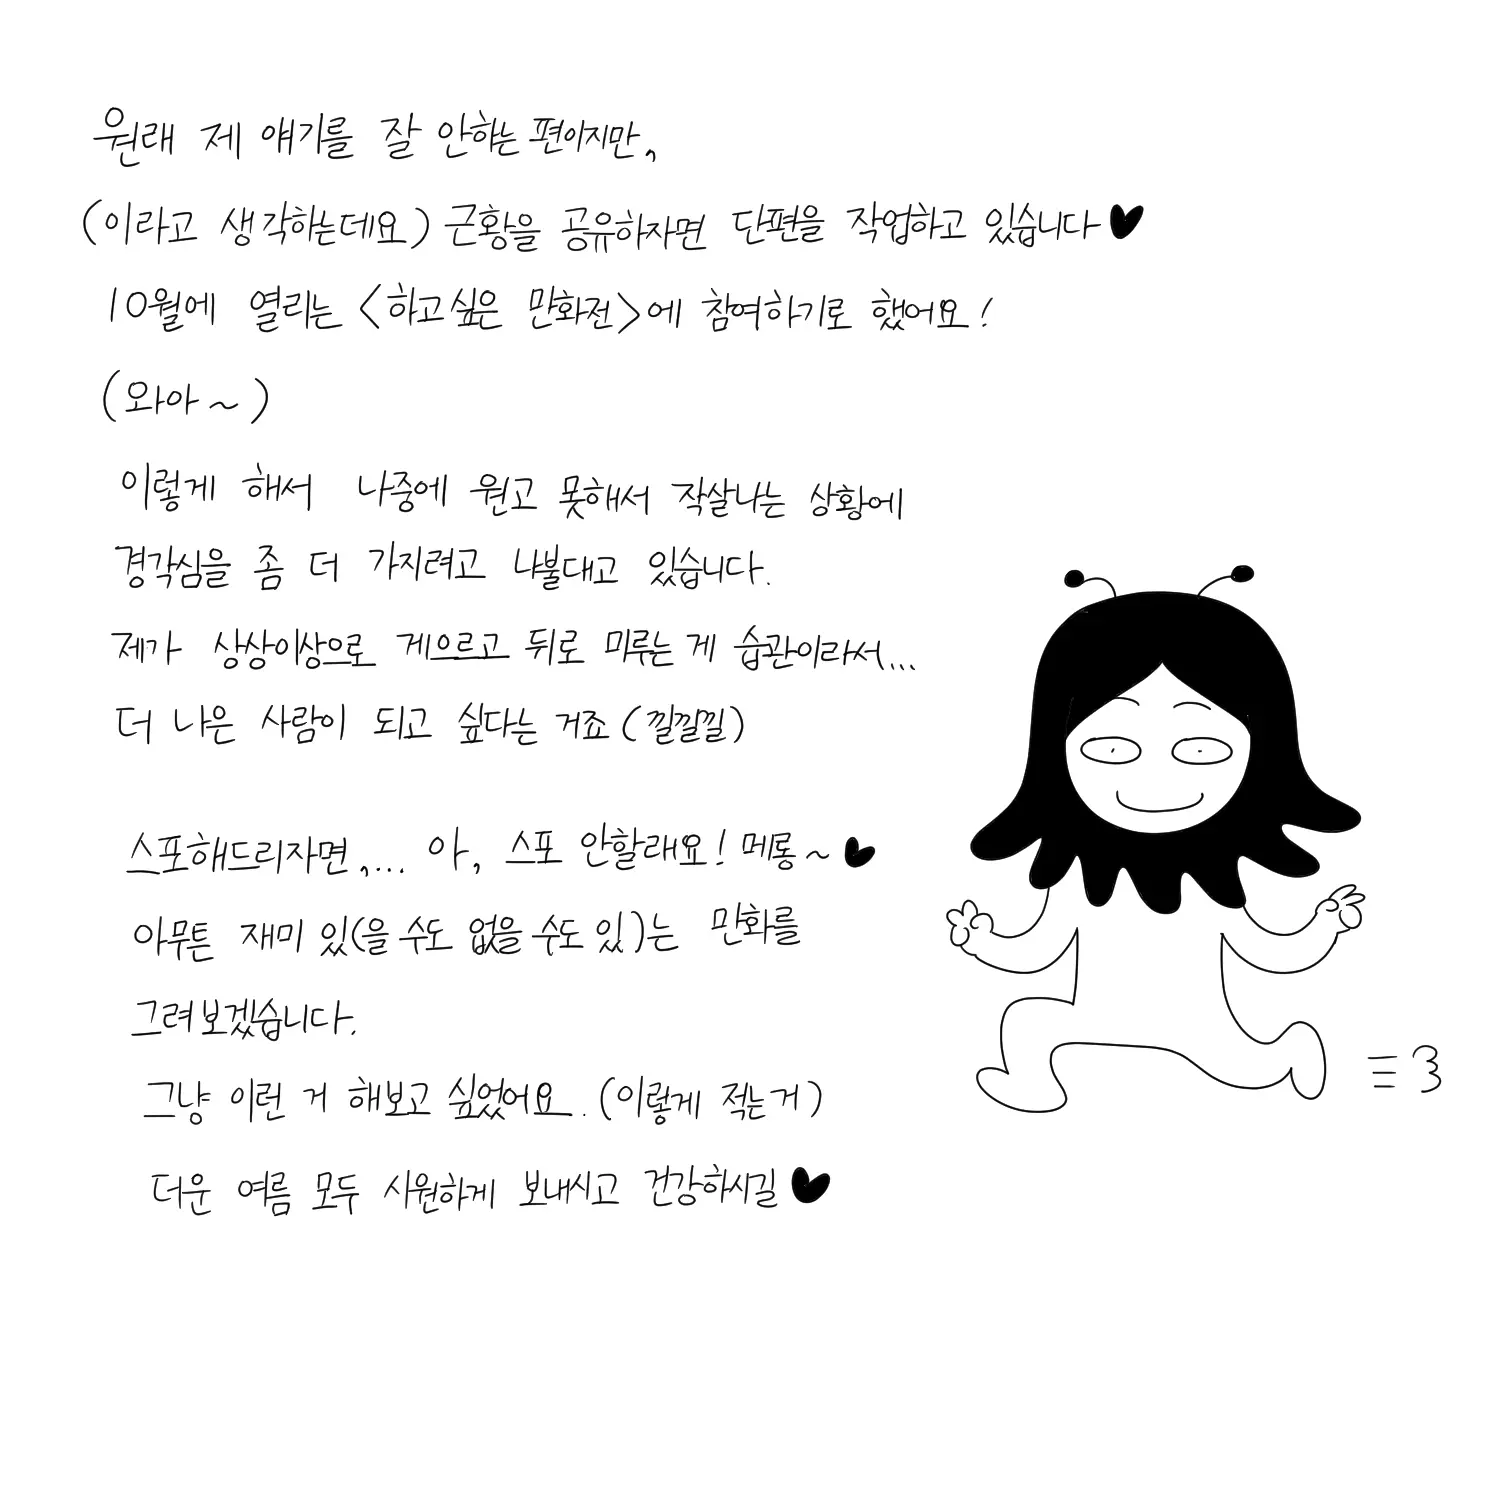 원래 제 얘기를 잘 안하는 편이지만,
(이라고 생각하는데요) 근황을 공유하자면 단편을 작업하고 있습니다♥
10월에 열리는 <하고싶은 만화전>에 참여하기로 했어요!
(와아~)
이렇게 해서 나중에 원고 못해서 작살나는 상황에
경각심을 좀 더 가지려고 나불대고 있습니다.
제가 상상이상으로 게으르고 뒤로 미루는 게 습관이라서...
더 나은 사람이 되고 싶다는 거죠 (낄낄낄)
스포해드리자면,... 아, 스포 안할래요! 메롱~♥
아무튼 재미 있(을 수도 없을 수도 있)는 만화를
그려보겠습니다.
그냥 이런 거 해보고 싶었어요. (이렇게 적는거)
더운 여름 모두 시원하게 보내시고 건강하시길♥